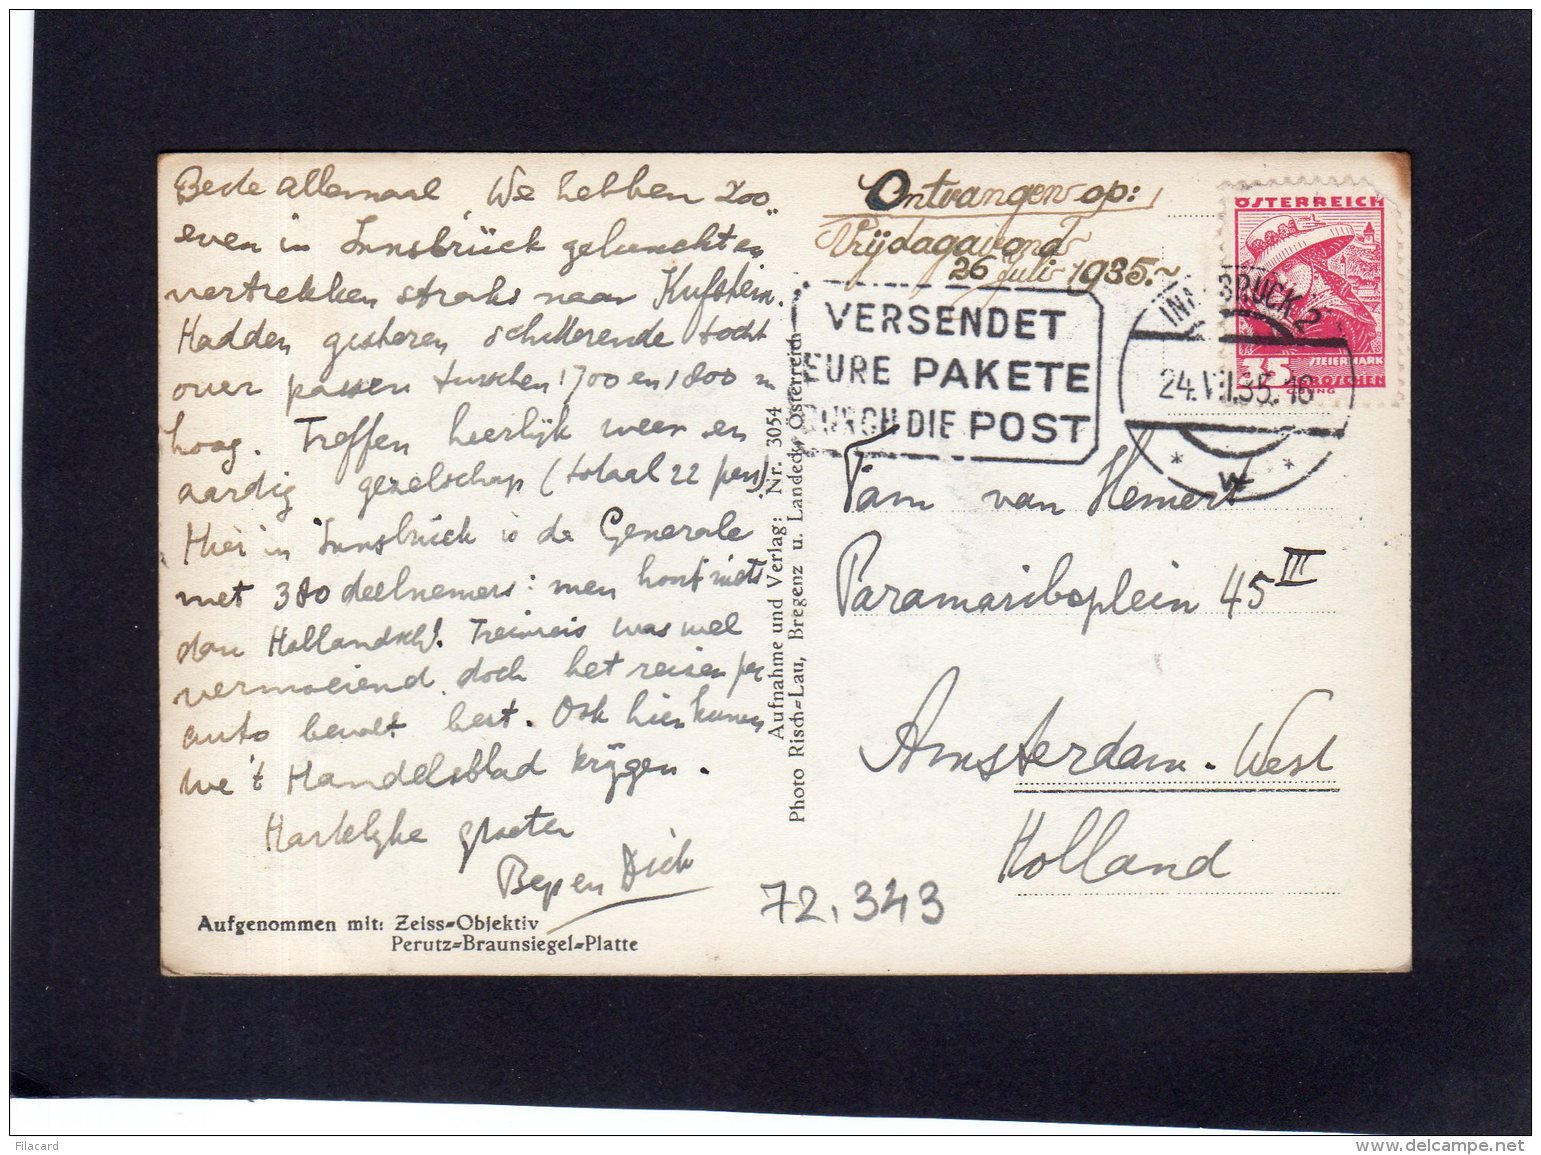 Beste allemaal, We hebben zoo
even in Innsbrück geluncht en
vertrekken straks naar Kufstein.
Hadden gisteren schitterende tocht
over passen tusschen 1700 en 1800 m
hoog. Treffen heerlijk weer en
aardig gezelschap (totaal 22 pers)
Hier in Innsbrück is de Generale
met 380 deelnemers: men hoort niets
dan Hollandsch!. Treinreis was wel
vermoeiend, doch het reizen per
auto bevalt best. Ook hier kunnen
we 't Handelsblad krijgen.
Hartelijke groeten
Bep en Dick
Aufgenommen mit: Zeiss=Objektiv
Perutz=Braunsiegel=Platte
Aufnahme und Verlag: Nr. 3054
Photo Risch=Lau, Bregenz u. Landeck, Österreich
Ontvangen op:
Vrijdagavond
26 juli 1935.~
VERSENDET
EURE PAKETE
DURCH DIE POST
INNSBRUCK 2
24.VII.35.16
* *
ÖSTERREICH
STEIERMARK
35 GROSCHEN
Fam van Hemert
Paramariboplein 45 III
Amsterdam-West
Holland
72.343
Filacard
www.delcampe.net